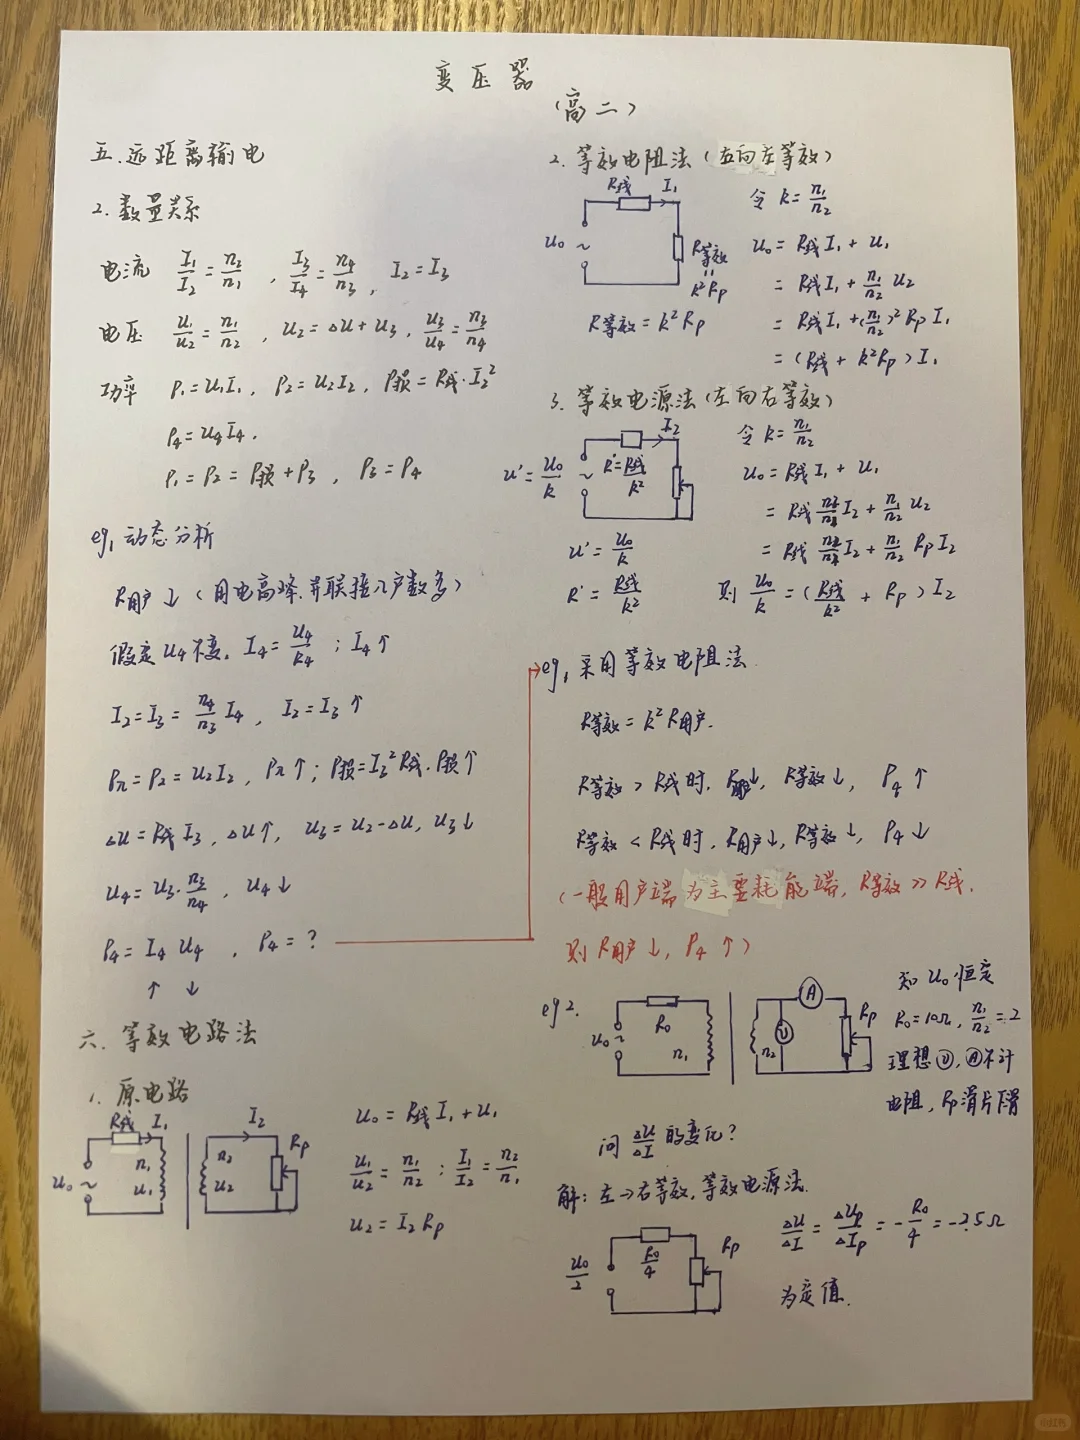 变压器
(高二)
五.远距离输电
2.数量关系
电流 I₁/I₂=n₂/n₁ , I₃/I₄=n₄/n₃ , I₂=I₃
电压 u₁/u₂=n₁/n₂ , u₂=△u+u₃ , u₃/u₄=n₃/n₄
功率 P₁=u₁I₁, P₂=u₂I₂, P损=R线·I₂²
P₄=u₄I₄.
P₁=P₂=P损+P₃ , P₃=P₄
eg₁动态分析
R用户↓(用电高峰.并联接入户数多)
假定u₄不变. I₄=u₄/R₄ ; I₄↑
I₂=I₃=n₄/n₃ I₄ , I₂=I₃↑
P入=P₂=u₂I₂, P入↑; P损=I₃²R线.P损↑
△u=R线I₃, △u↑, u₃=u₂-△u, u₃↓
u₄=u₃·n₃/n₄ , u₄↓
P₄=I₄u₄ , P₄=?
↑ ↓
六.等效电路法
1.原电路
R线 I₁ I₂
u₀ ~ n₁ u₁ n₂ u₂ Rp
u₀=R线I₁+u₁
u₁/u₂=n₁/n₂ ; I₁/I₂=n₂/n₁
u₂=I₂Rp
2.等效电阻法(右向左等效)
R线 I₁
u₀ ~ R等效
=
k²Rp
R等效=k²Rp
令k=n₁/n₂
u₀=R线I₁+u₁
=R线I₁+n₁/n₂ u₂
=R线I₁+(n₁/n₂)²RpI₁
=(R线+k²Rp)I₁
3.等效电源法(左向右等效)
I₂
u'=u₀/k ~ R'=R线/k²
u'=u₀/k
R'=R线/k²
令k=n₁/n₂
u₀=R线I₁+u₁
=R线 I₂+n₁/n₂ u₂
=R线 I₂+n₁/n₂ RpI₂
则 u₀/k=(R线/k²+Rp)I₂
eg₁采用等效电阻法.
R等效=k²R用户.
R等效>R线时. R用户↓, R等效↓, P₄↑
R等效<R线时, R用户↓, R等效↓, P₄↓
(一般用户端为主要耗能端, R等效>>R线.
则R用户↓, P₄↑)
eg2.
u₀ ~ R₀ n₁ n₂ V A Rp
知u₀恒定
R₀=10Ω, n₁/n₂=2
理想Ⓥ,Ⓐ不计
电阻, Rp滑片下滑
问△u/△I的变化?
解:左→右等效,等效电源法.
u₀/2 R₀/4 Rp
△u/△I=△up/△Ip=-R₀/4=-2.5Ω
为定值.
小红书